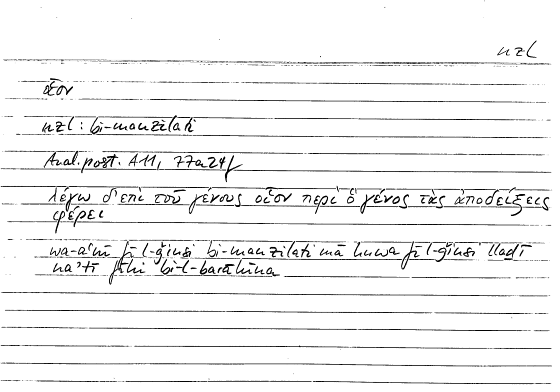 nzl
οἷον
nzl : bi-manzilati
Anal. post. A 11, 77a24f
λέγω δ' ἐπὶ τοῦ γένους οἷον περὶ ὃ γένος τὰς ἀποδείξεις
φέρει
wa-aʿnī fī l-ǧinsi bi-manzilati mā huwa fī l-ǧinsi lladī
naʾtī fīhi bi-l-barāhīna